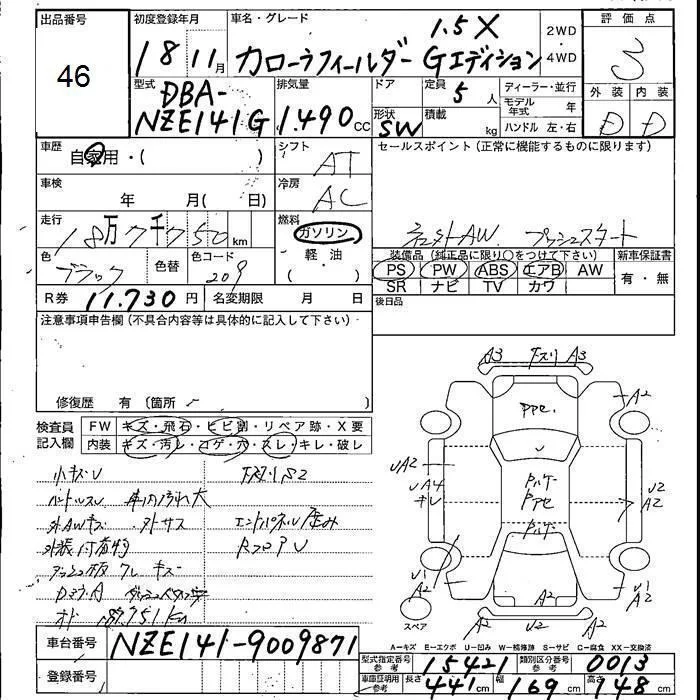 出品番号
46
初度登録年月
18 11月
車名・グレード
1.5X
カローラフィールダー Gエディション
2WD
・
4WD
評価点
3
外装 内装
D D
型式
DBA-
NZE141G
排気量
1.490cc
ドア
形状
SW
定員
5人
積載
kg
ディーラー・並行
モデル年式 年
ハンドル 左・右
車歴
自家用・( )
シフト
AT
セールスポイント(正常に機能するものに限ります)
車検
年 月( 日)
冷房
AC
走行
18万7千750km
燃料
ガソリン
軽油
( )
社外AW プッシュスタート
色
ブラック
色替
色コード
209
装備品(純正品に限り○をつけて下さい)
PS PW ABS エアB AW
SR ナビ TV カワ
新車保証書
有・無
R券 11.730円
名変期限 月 日
後日品
注意事項申告欄(不具合内容等は具体的に記入して下さい)
修復歴 有(箇所
検査員
記入欄
FW キズ・飛石・ヒビ割・リペア跡・X要
内装 キズ・汚レ・コゲ・穴・スレ・キレ・破レ
小キズU
ハンドルスレ 車内汚れ大
外AWキズ 外サス
エンドパネル歪み
RフロアU
A3 下スリ A3
A2
PPE.
UA2
UA4
キレ
U2
A2
U1
A2
U1
A2
A2 U2 A2
スペア
A-キズ E-エクボ U-凹み W-補修跡 S-サビ C-腐食 XX-交換済
車台番号
NZE141-9009871
登録番号
型式指定番号
参考
15421
類別区分番号
参考
0013
車庫証明用
参考
長さ 441cm
幅 169cm
高さ 148cm